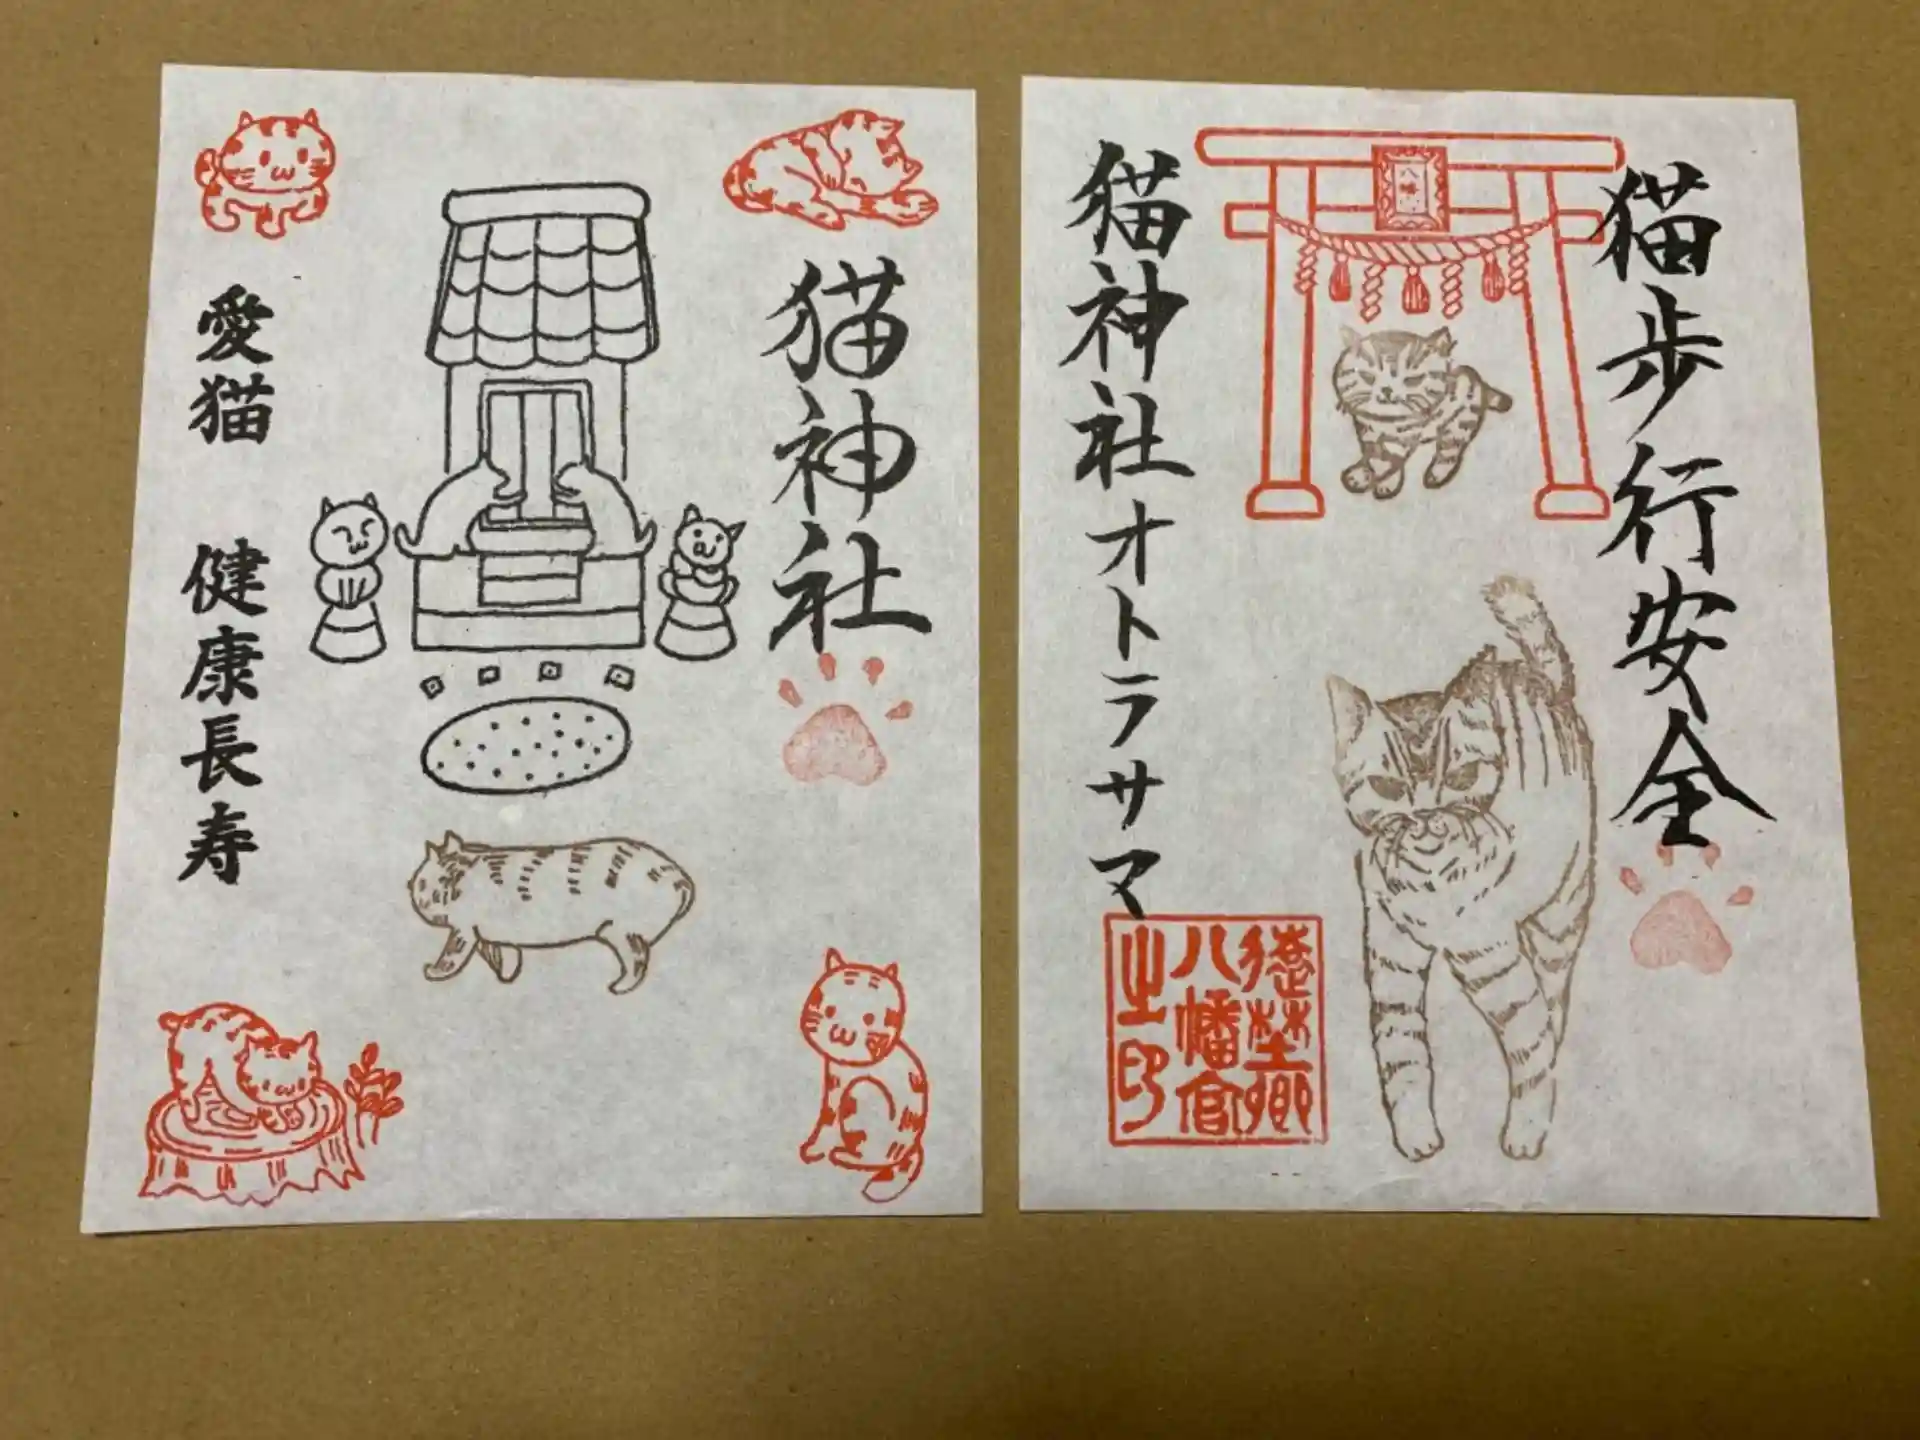 猫神社
愛猫 健康長寿
猫歩行安全
八幡
猫神社オトラサマ
八幡宮
之印